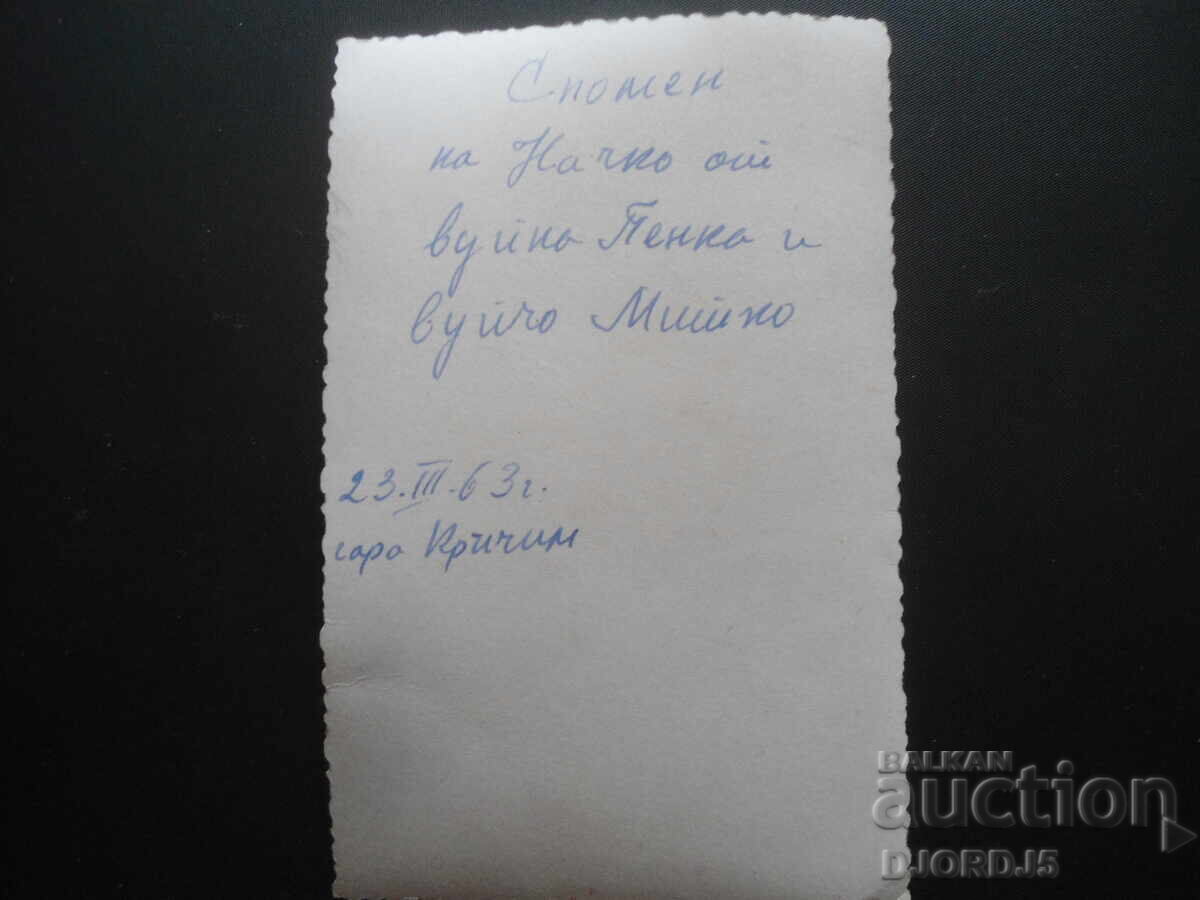 Спомен
на Начко от
вуйна Пенка и
вуйчо Мишко
23.III.63г.
гара Кричим
BALKAN
auction
DJORDJ5